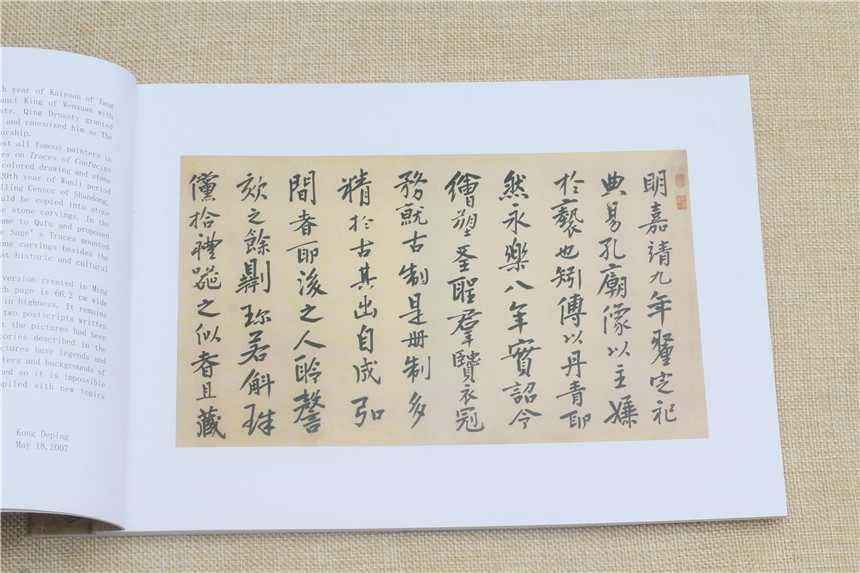 h year of Kaiyuan of Tang
anct King of Wenxuan with
ty. Qing Dynasty granted
and canonized him as The
orship.
st all famous painters in
es on Traces of Confucius
colored drawing and stone
20th year of Wanli period
lling Censor of Shandong,
uld be copied into stone
e stone carvings. In the
me to Qufu and proposed
e Sage's Traces mounted
one carvings besides the
at historic and cultural
version created in Ming
ch page is 66.2 cm wide
in highness. It remains
two postscripts written
t the pictures had been
ories described in the
ctures have legends and
ters and backgrounds of
ed so it is impossible
piled with new topics
Kong Deping
May 18,2007
明嘉靖九年釐定祀
典易孔廟像以主嫌
於褻也矧傅以丹青耶
然永樂八年實詔令
繪塑至聖羣賢衣冠
務就古制是冊制多
精於古其出自成弘
間者耶後之人聆謦
欬之餘珍若斛珠
儻拾禮之似者且藏